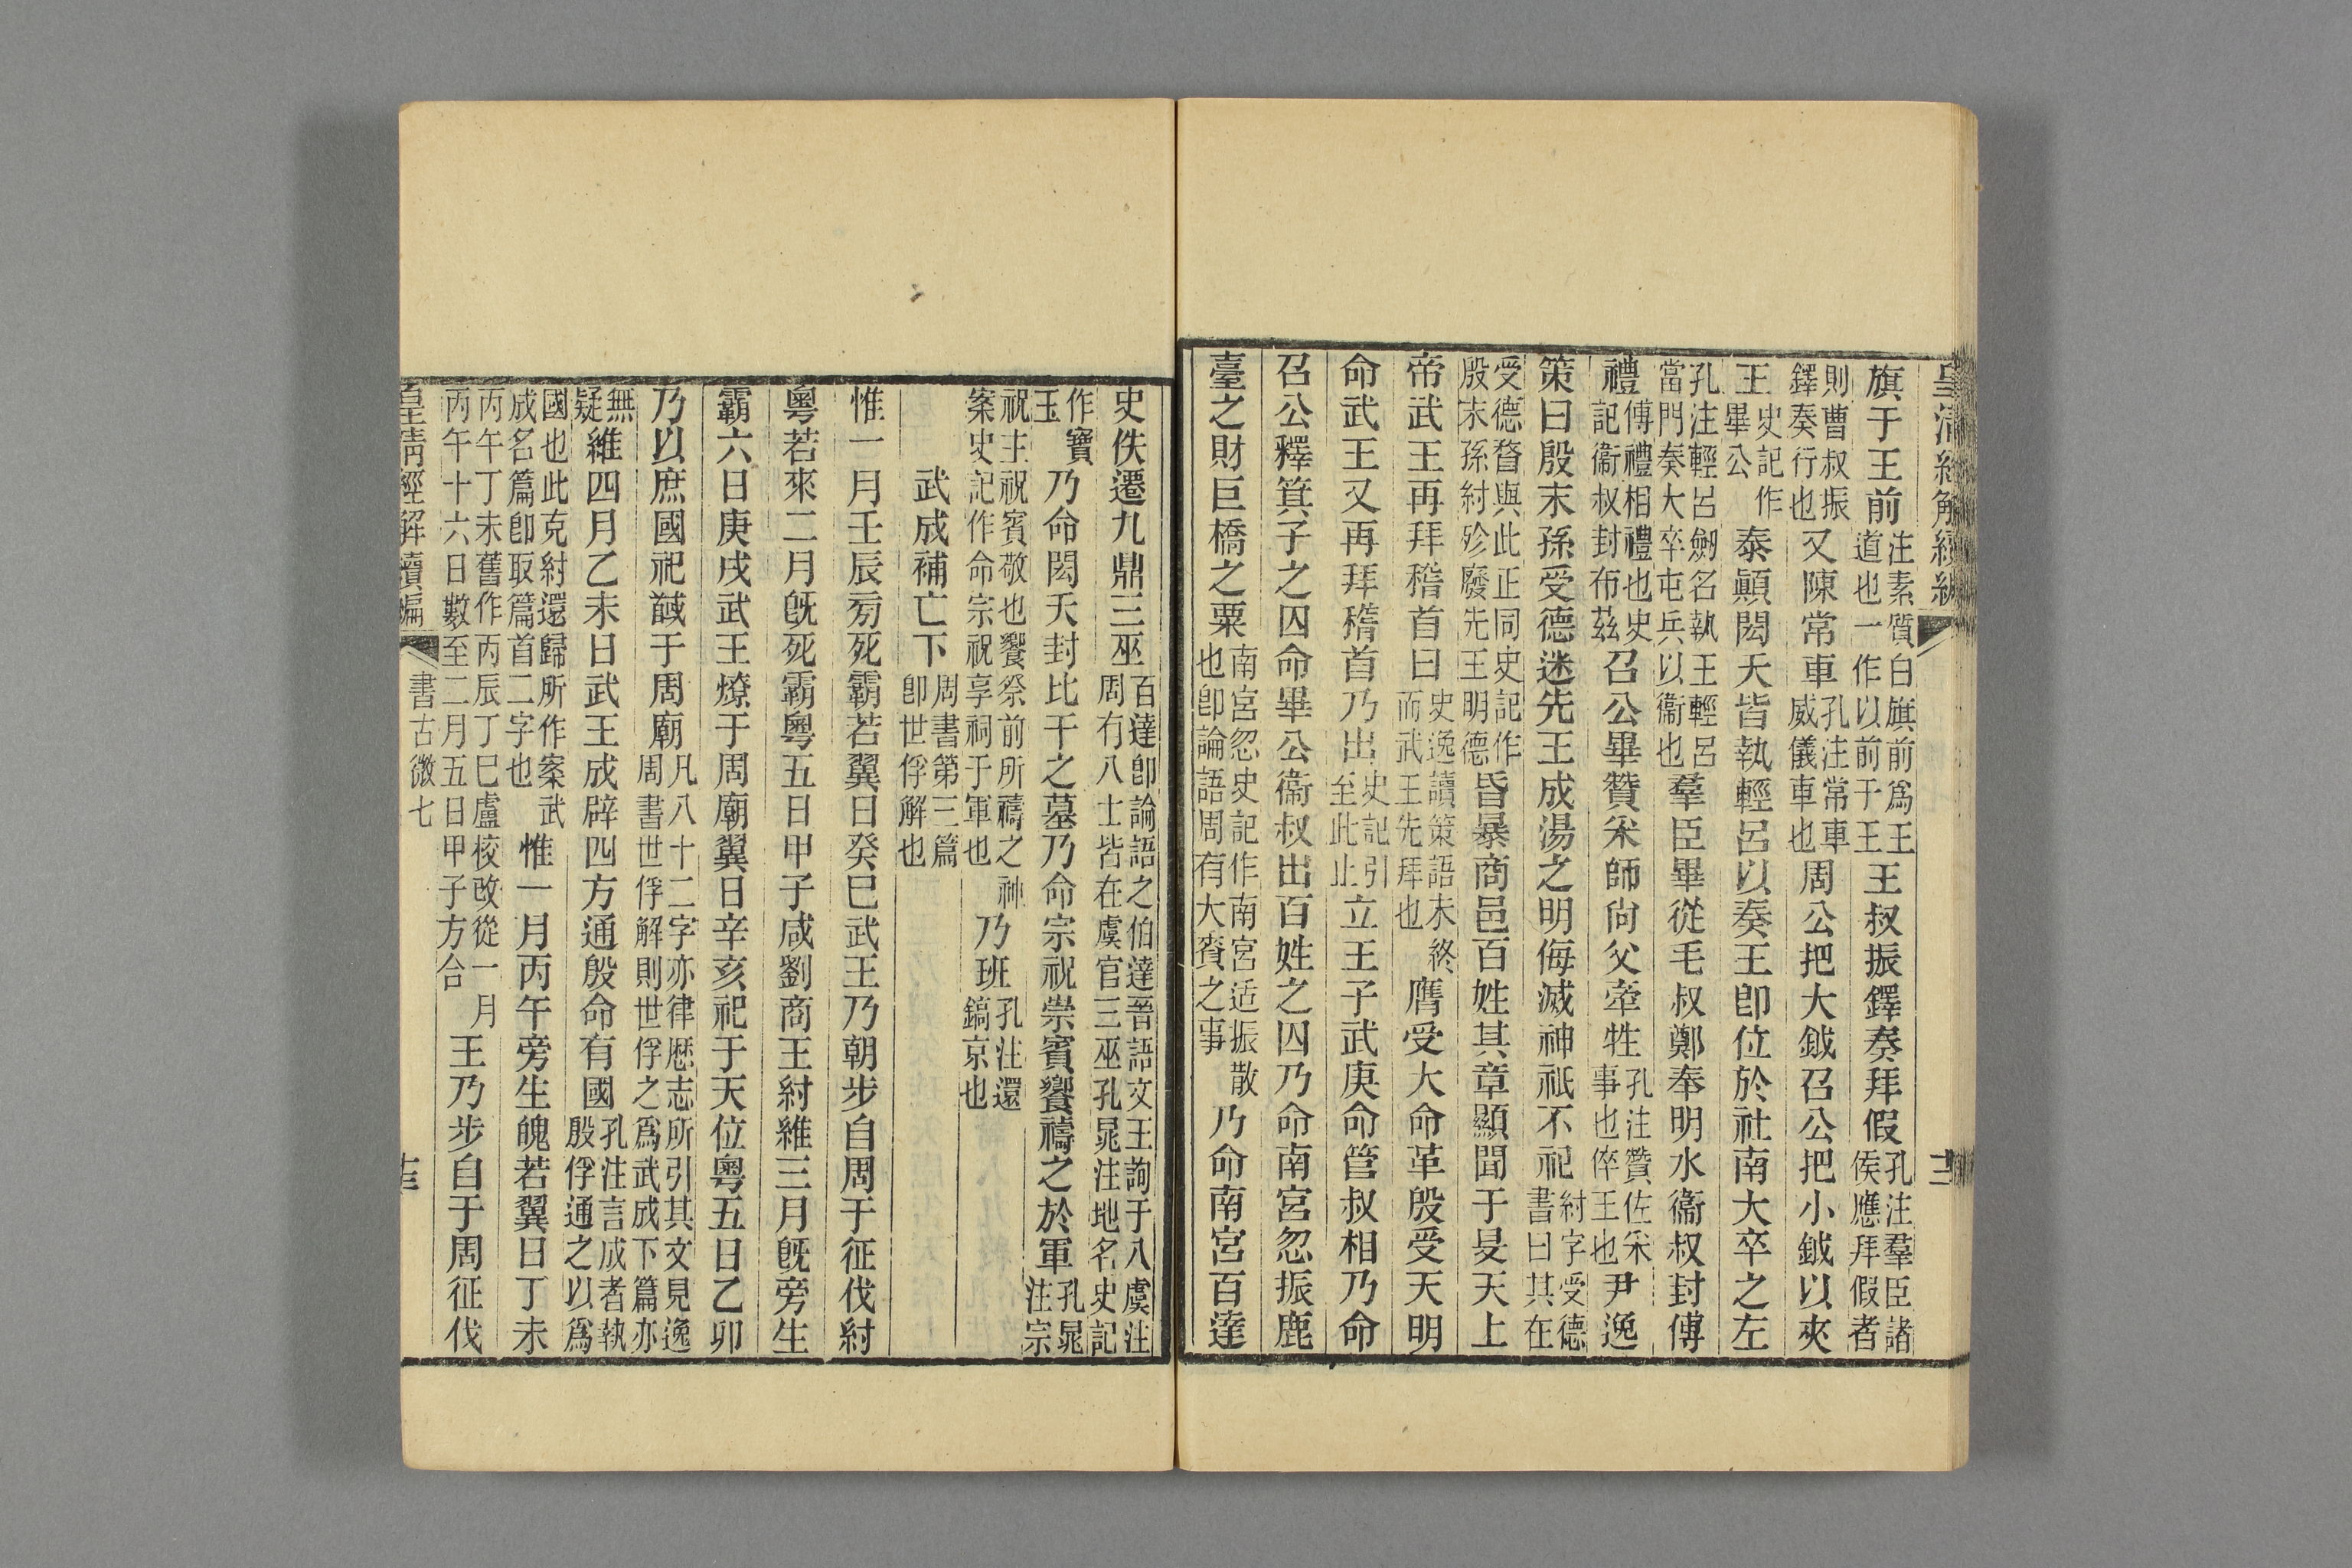 皇清經解續編 十二
旗于王前注素質白旗前爲王道也一作以前于王王叔振鐸奏拜假孔注羣臣諸侯應拜假者
則曹叔振鐸奏行也又陳常車孔注常車威儀車也周公把大鉞召公把小鉞以夾
王史記作畢公泰顚閎夭皆執輕呂以奏王卽位於社南大卒之左
孔注輕呂劒名執王輕呂當門奏大卒屯兵以衞也羣臣畢從毛叔鄭奉明水衞叔封傅
禮傅禮相禮也史記衞叔封布茲召公畢贊釆師尙父牽牲孔注贊佐釆事也倅王也尹逸
策曰殷末孫受德迷先王成湯之明侮滅神祇不祀紂字受德書曰其在
受德暋與此正同史記作殷末孫紂殄廢先王明德昏暴商邑百姓其章顯聞于旻天上
帝武王再拜稽首曰史逸讀策語未終而武王先拜也膺受大命革殷受天明
命武王又再拜稽首乃出史記引至此止立王子武庚命管叔相乃命
召公釋箕子之囚命畢公衞叔出百姓之囚乃命南宮忽振鹿
臺之財巨橋之粟南宮忽史記作南宮适振散也卽論語周有大賚之事乃命南宮百達
史佚遷九鼎三巫百達卽論語之伯達晉語文王詢于八虞注周有八士皆在虞官三巫孔晁注地名史記
作寶玉乃命閎夭封比干之墓乃命宗祝崇賓饗禱之於軍孔晁注宗
祝主祝賓敬也饗祭前所禱之神案史記作命宗祝享祠于軍也乃班孔注還鎬京也
武成補亡下周書第三篇卽世俘解也
惟一月壬辰旁死霸若翼日癸巳武王乃朝步自周于征伐紂
粵若來二月旣死霸粵五日甲子咸劉商王紂維三月旣旁生
霸六日庚戌武王燎于周廟翼日辛亥祀于天位粵五日乙卯
乃以庶國祀馘于周廟凡八十二字亦律厤志所引其文見逸周書世俘解則世俘之爲武成下篇亦
無疑維四月乙未日武王成辟四方通殷命有國孔注言成者執殷俘通之以爲
國也此克紂還歸所作案武成名篇卽取篇首二字也惟一月丙午旁生魄若翼日丁未
丙午丁未舊作丙辰丁巳盧校改從一月丙午十六日數至二月五日甲子方合王乃步自于周征伐
皇淸經解續編 書古微七 十三